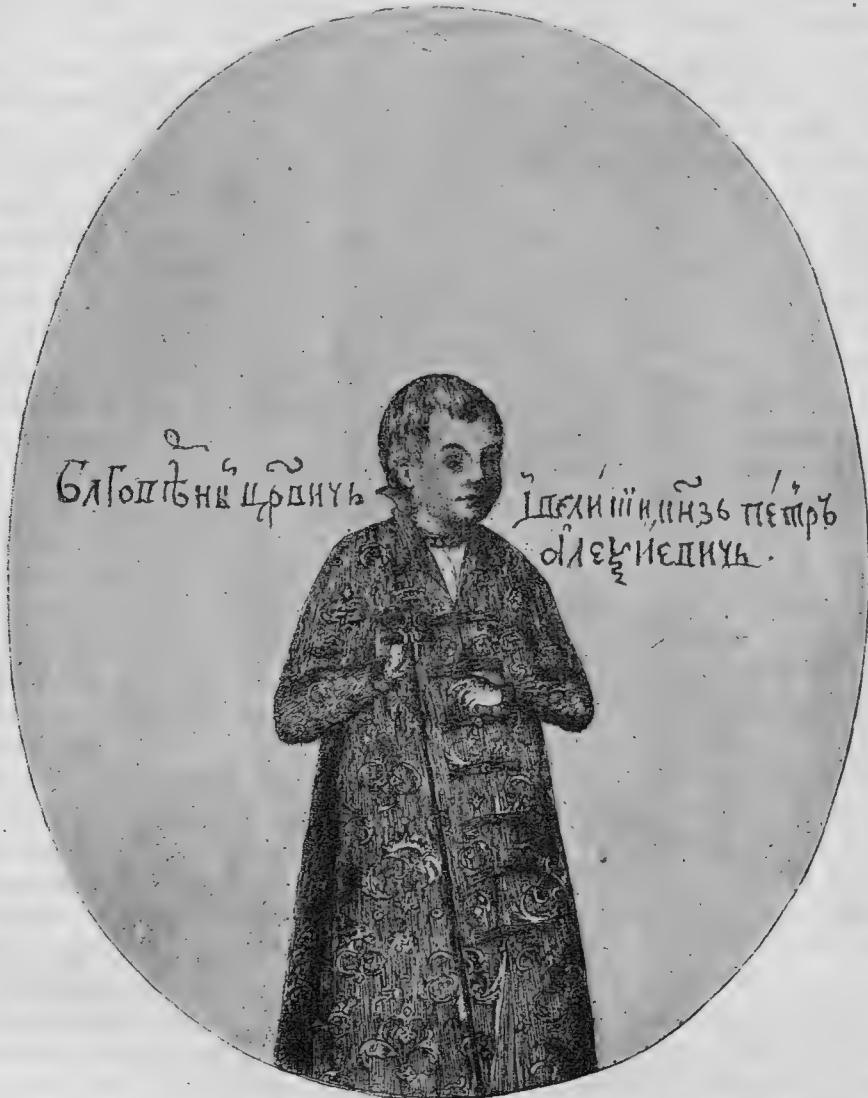 блговѣны цр҃вичь
Ї вели́кїи кн҃зь пе́тръ
алеѯиевичь.